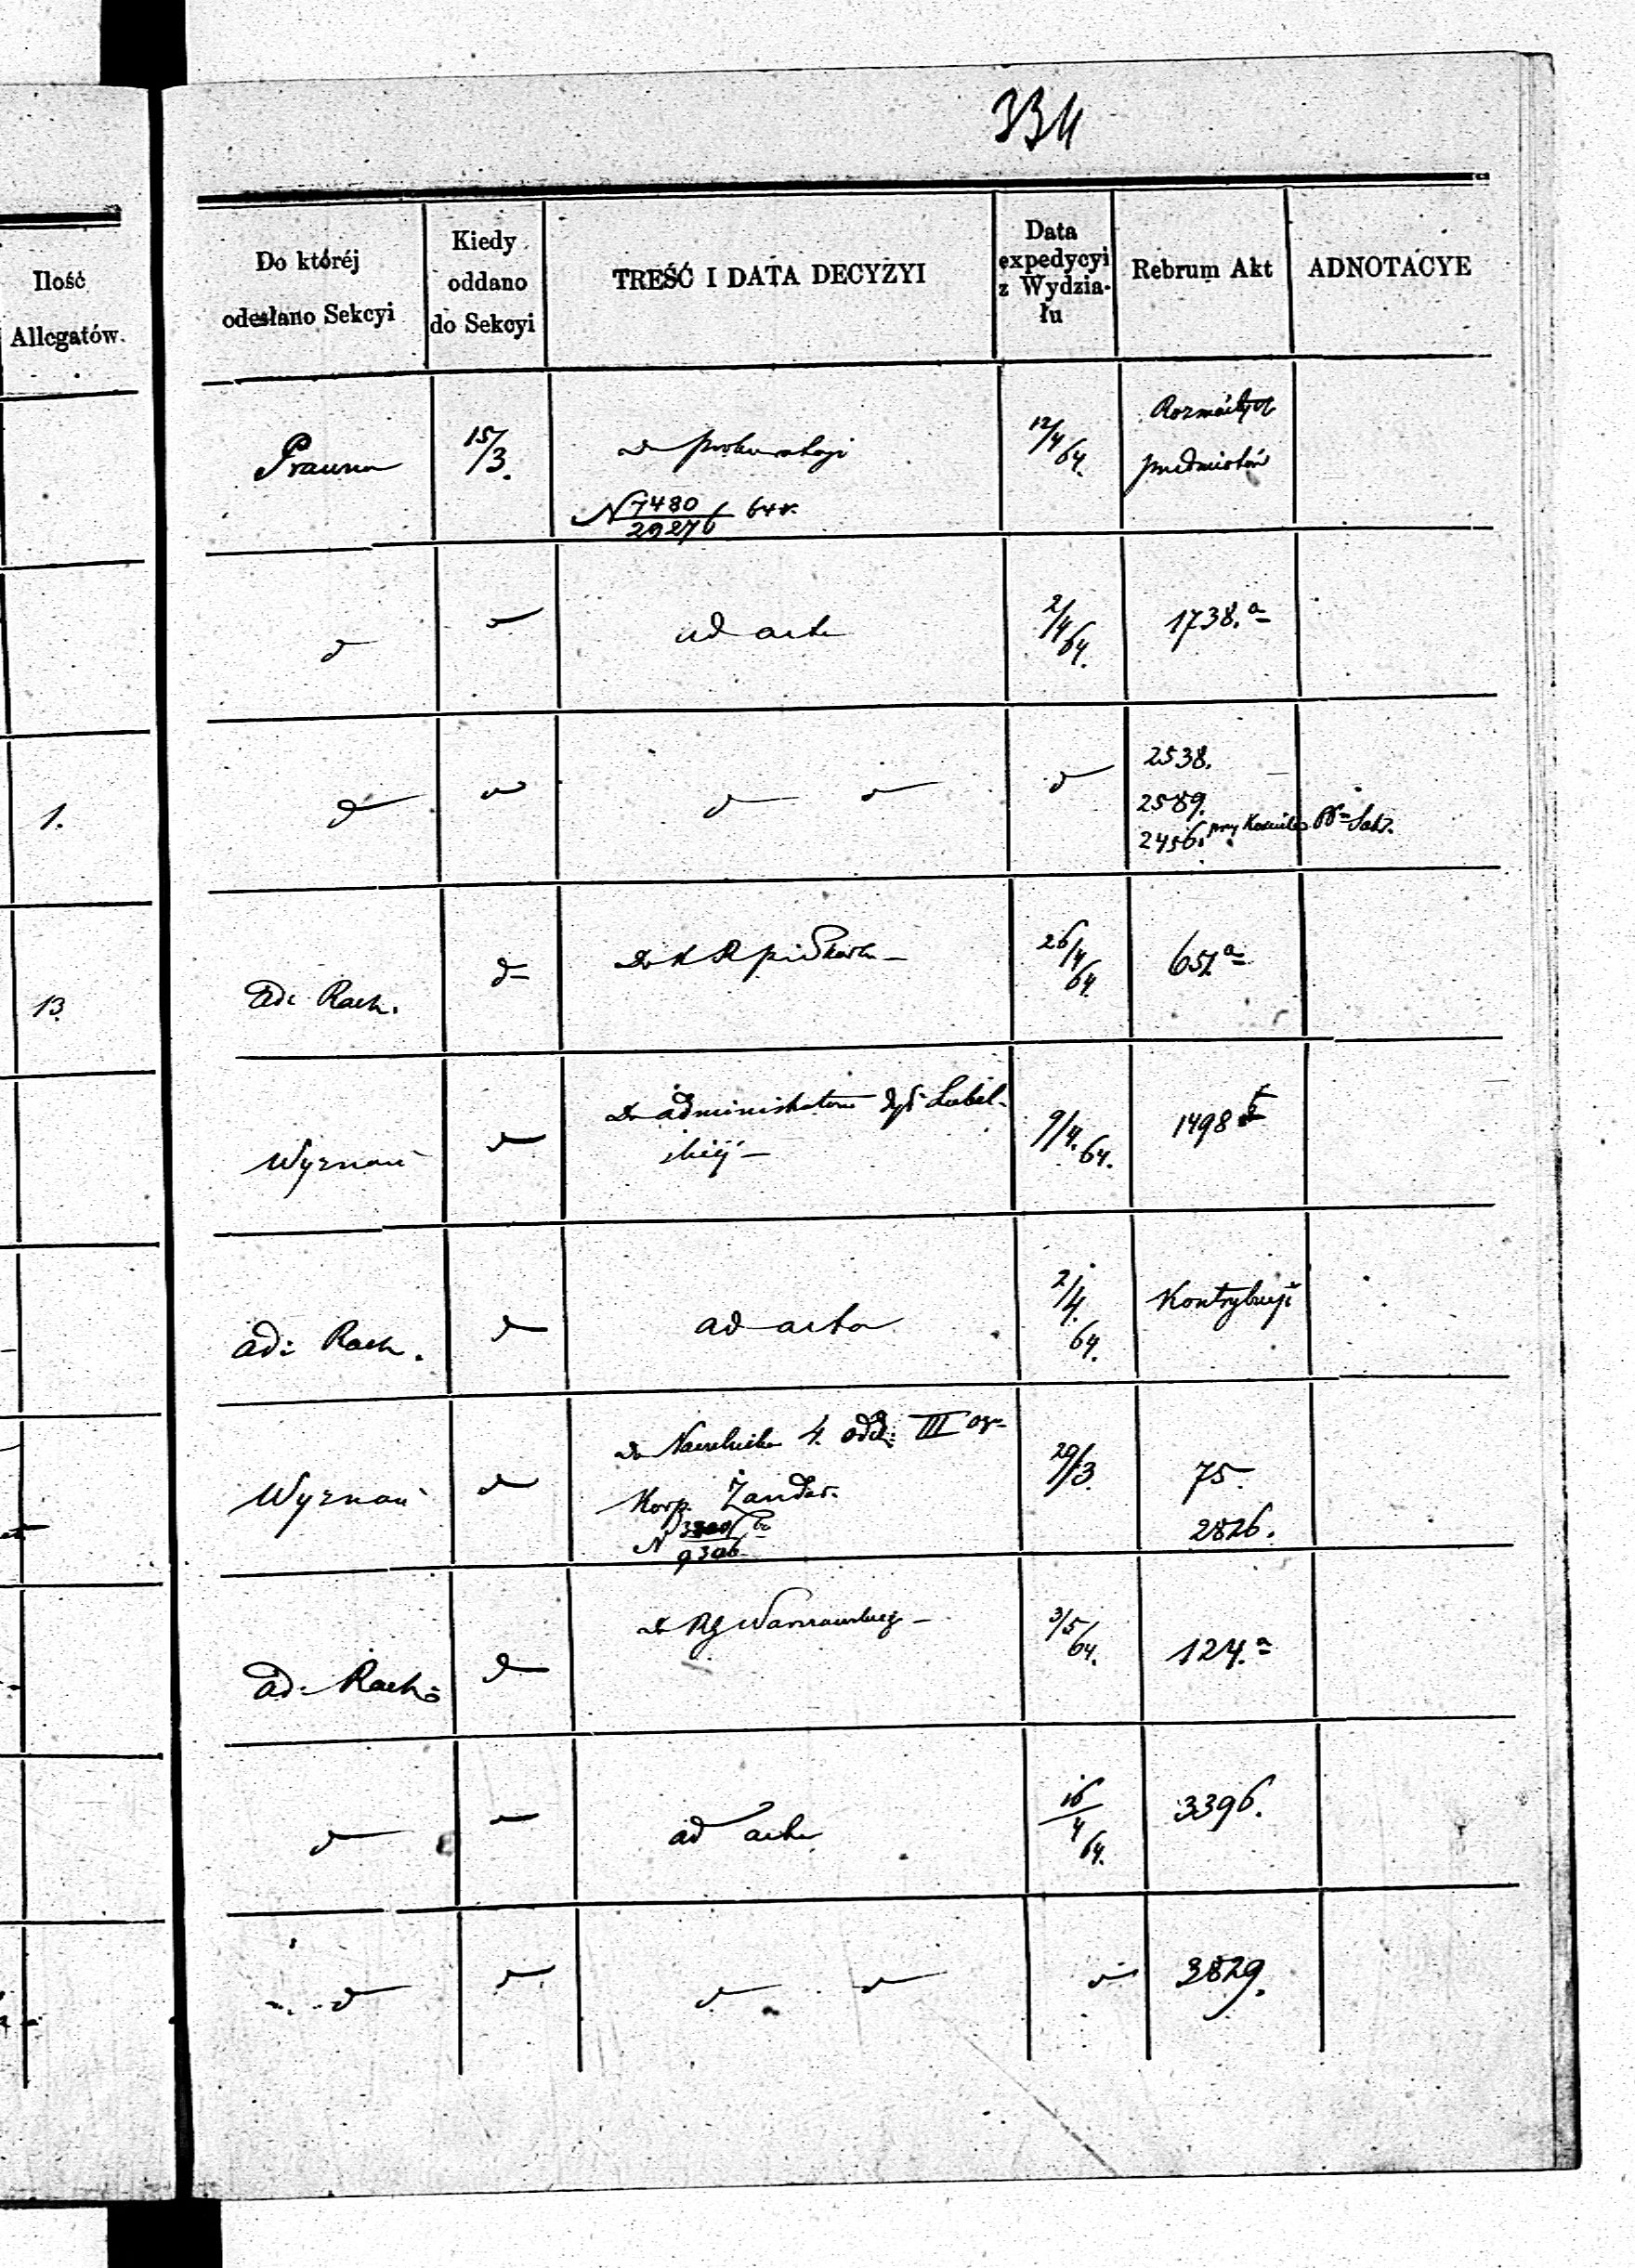 334
Ilość
Allegatów.
Do któréj
odesłano Sekcyi
Kiedy
oddano
do Sekcyi
TREŚĆ I DATA DECYZYI
Data
expedycyi
z Wydzia-
łu
Rebrum Akt
ADNOTACYE
Prawna
15/3.
Do prokuratoryi
N 7480/29276 64 r.
12/4 64.
Rozmaitych
przedmiotów
ad acta
2/4 64.
1738.a
1.
2538.
2589.
2456. przy
13.
Ad: Rach.
Do K R
26/4 64.
Wyznań
Do administratora dyec Lubel-
skiéj
9/4. 64.
1498
ad: Rach.
ad acta
2/4. 64.
Kontrybucyi
Wyznań
Do Naczelnika 4. odd: III okr
Korp. Żandar.
29/3.
75.
2826.
ad. Rach:
Do RG Warszawskiego
3/5 64.
124.a
ad acta
16/4 64.
3396.
3829.